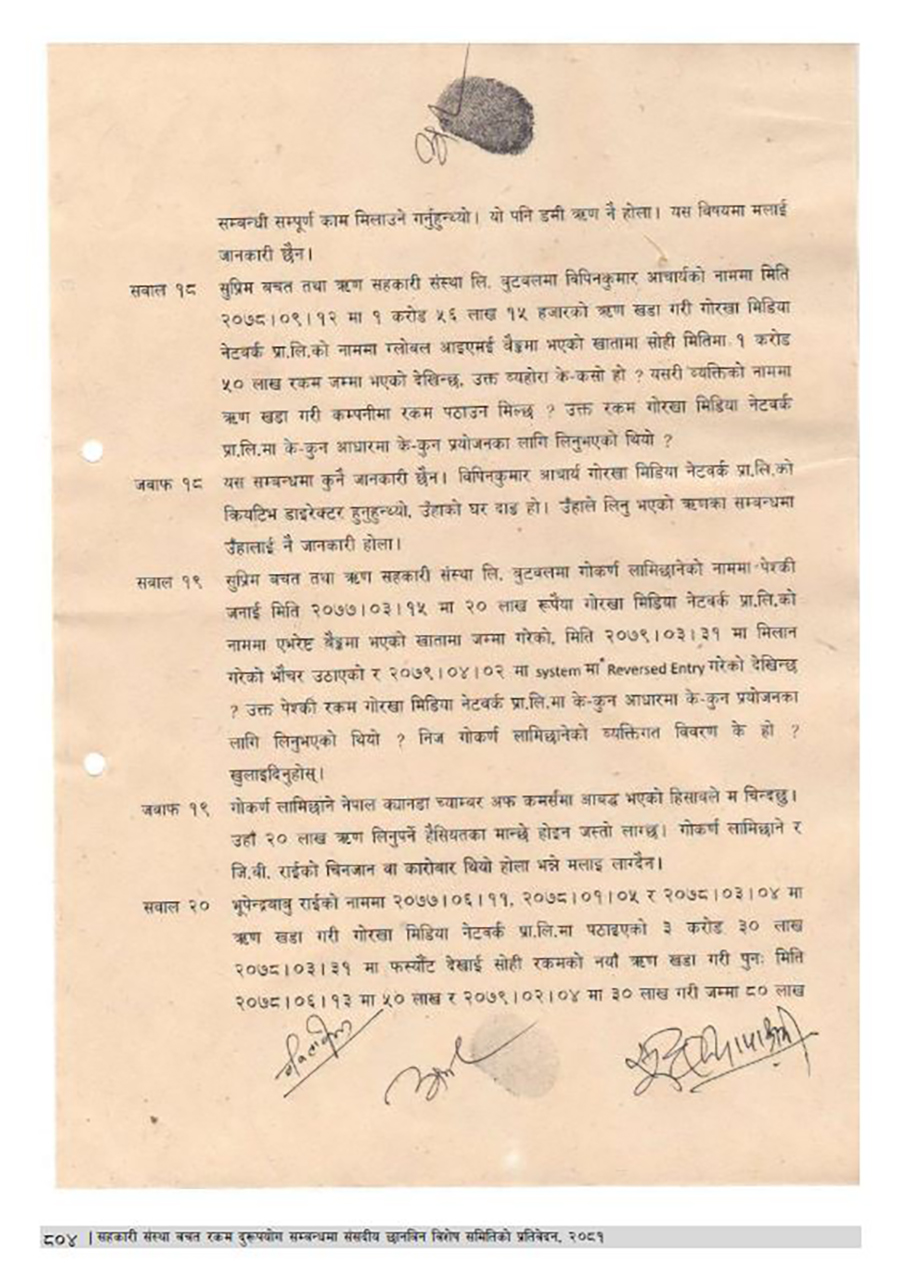 सम्बन्धी सम्पूर्ण काम मिलाउने गर्नुहुन्थ्यो। यो पनि डमी ऋण नै होला। यस विषयमा मलाई
जानकारी छैन।
सवाल १८ सुप्रिम बचत तथा ऋण सहकारी संस्था लि. बुटवलमा विपिनकुमार आचार्यको नाममा मिति
२०७८।०९।१२ मा १ करोड ५६ लाख १५ हजारको ऋण खडा गरी गोरखा मिडिया
नेटवर्क प्रा.लि.को नाममा ग्लोबल आइएमई बैङ्कमा भएको खातामा सोही मितिमा १ करोड
५० लाख रकम जम्मा भएको देखिन्छ, उक्त व्यहोरा के-कसो हो ? यसरी व्यक्तिको नाममा
ऋण खडा गरी कम्पनीमा रकम पठाउन मिल्छ ? उक्त रकम गोरखा मिडिया नेटवर्क
प्रा.लि.मा के-कुन आधारमा के-कुन प्रयोजनका लागि लिनुभएको थियो ?
जवाफ १८ यस सम्बन्धमा कुनै जानकारी छैन। विपिनकुमार आचार्य गोरखा मिडिया नेटवर्क प्रा.लि.को
क्रियटिभ डाइरेक्टर हुनुहुन्थ्यो, उँहाको घर दाङ हो। उँहाले लिनु भएको ऋणका सम्बन्धमा
उँहालाई नै जानकारी होला।
सवाल १९ सुप्रिम बचत तथा ऋण सहकारी संस्था लि. बुटवलमा गोकर्ण लामिछानेको नाममा पेश्की
जनाई मिति २०७७।०३।१५ मा २० लाख रूपैया गोरखा मिडिया नेटवर्क प्रा.लि.को
नाममा एभरेष्ट बैङ्कमा भएको खातामा जम्मा गरेको, मिति २०७९।०३।३१ मा मिलान
गरेको भौचर उठाएको र २०७९।०४।०२ मा system मा Reversed Entry गरेको देखिन्छ
? उक्त पेश्की रकम गोरखा मिडिया नेटवर्क प्रा.लि.मा के-कुन आधारमा के-कुन प्रयोजनका
लागि लिनुभएको थियो ? निज गोकर्ण लामिछानेको व्यक्तिगत विवरण के हो ?
खुलाइदिनुहोस्।
जवाफ १९ गोकर्ण लामिछाने नेपाल क्यानडा च्याम्बर अफ कमर्समा आबद्ध भएको हिसाबले म चिन्दछु।
उहाँ २० लाख ऋण लिनुपर्ने हैसियतका मान्छे होइन जस्तो लाग्छ। गोकर्ण लामिछाने र
जि.बी. राईको चिनजान वा कारोबार थियो होला भन्ने मलाइ लाग्दैन।
सवाल २० भूपेन्द्रबाबु राईको नाममा २०७७।०६।११, २०७८।०१।०५ र २०७८।०३।०४ मा
ऋण खडा गरी गोरखा मिडिया नेटवर्क प्रा.लि.मा पठाइएको ३ करोड ३० लाख
२०७८।०३।३१ मा फर्स्यौट देखाई सोही रकमको नयाँ ऋण खडा गरी पुनः मिति
२०७८।०६।१३ मा ५० लाख र २०७९।०२।०४ मा ३० लाख गरी जम्मा ८० लाख
८०४ | सहकारी संस्था बचत रकम दुरूपयोग सम्बन्धमा संसदीय छानबिन विशेष समितिको प्रतिवेदन, २०८१